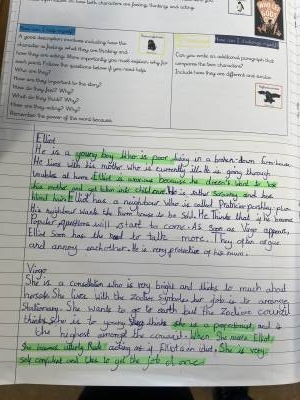 how both characters are feeling, thinking and acting.
WHO LET THE GODS OUT
How can I help myself?
A good description involves including how the
character is feeling, what they are thinking and
how they are acting. More importantly you must explain why for
each point. Follow the questions below if you need help.
Who are they?
How are they important to the story?
How do they feel? Why?
What do they think? Why?
How are they acting? Why?
Remember the power of the word because.
How can I challenge myself?
Can you write an additional paragraph that
compares the two characters?
Include how they are different and similar.
Elliot
He is a young boy who is poor living in a broken-down farm house.
He lives with his mother who is currently ill. He is going through
troubles at home. Elliot is worried because he doesn't want to lose
his mother and get taken into child care. He is rather and has
Elliot has a neighbour who is called Patricia
His neighbour wants the farm house to be sold. He thinks that if he becomes
Popular, questions will start to come. As soon as Virgo appears,
Elliot soon has the need to talk more. They often argue
and annoy eachother. He is very protective of his mum.
Virgo
She is a constellation who is very bright and thinks to much about
herself. She lives with the Zodiac Symbols. Her job is to arrange
Stationary. She wants to go to earth but the Zodiac council
thinks she is to young. She thinks she is a perfectionist and is
the highest amongst the council. When She meets Elliot,
She becomes utterly Rude acting as if Elliot is an idiot. She is very
self confident and likes to get the job done.